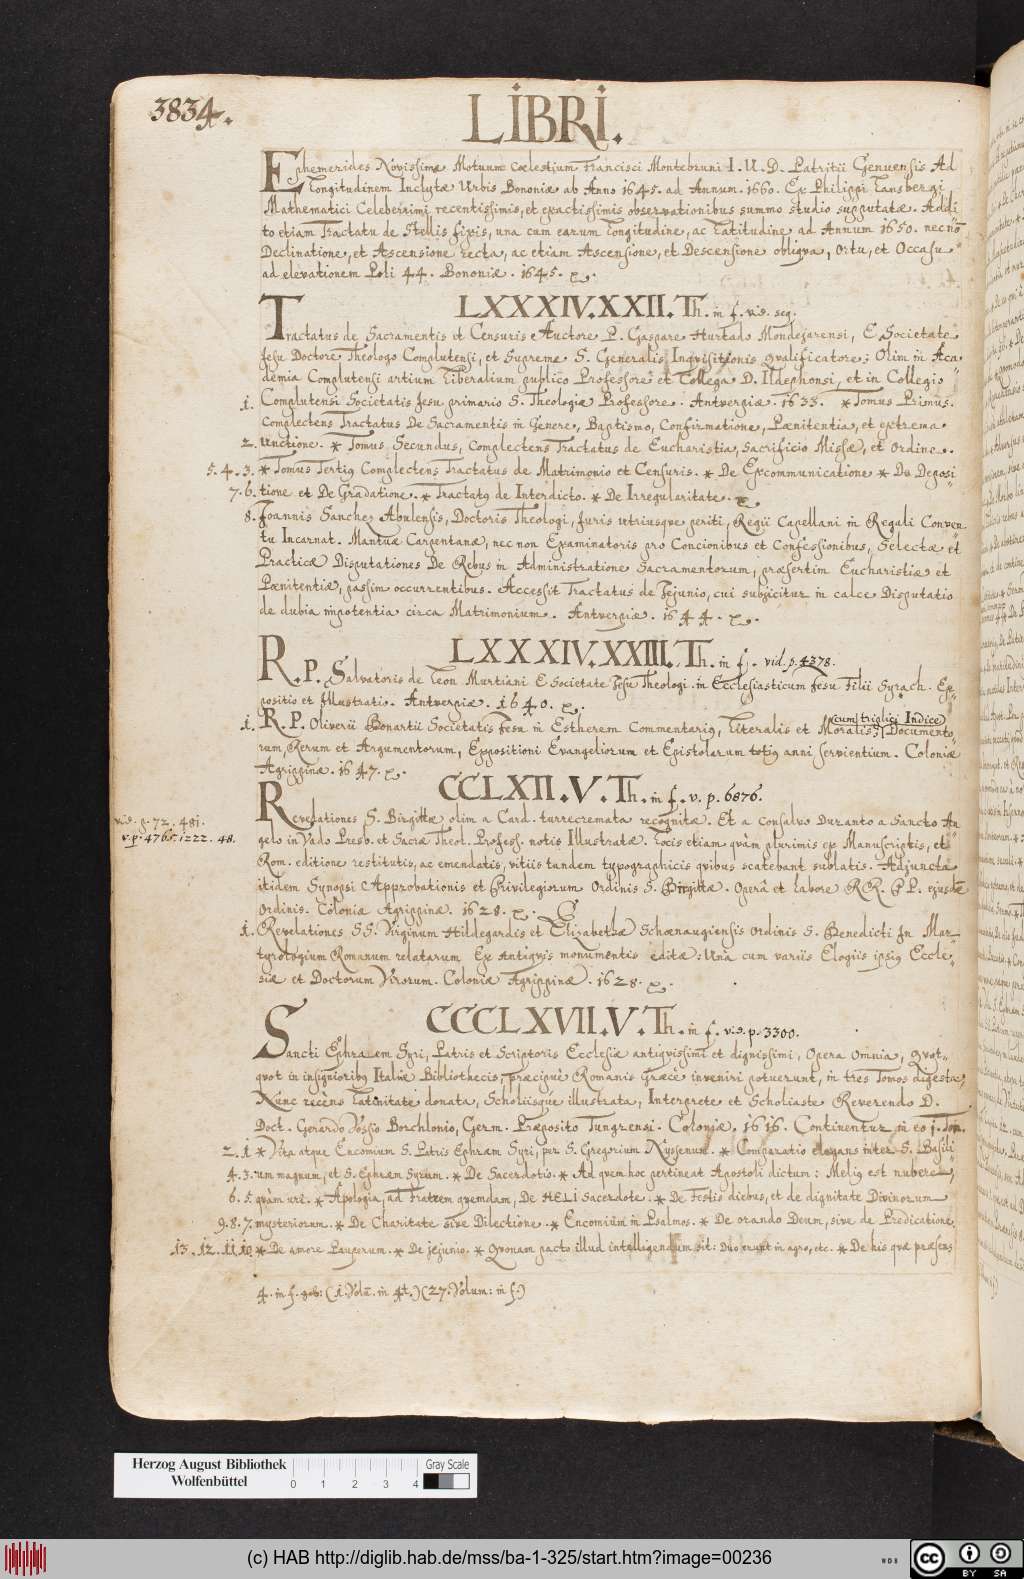 3834.
LIBRI.
Ephemerides Novissimæ Motuum Cœlestium Francisci Montebruni I. U. D. Patritii Genuensis Ad
Longitudinem Inclytæ Urbis Bononiæ ab Anno 1645. ad Annum. 1660. Ex Philippi Lansbergi
Mathematici Celeberrimi recentissimis, et exactissimis observationibus summo studio supputatæ. Addi
to etiam Tractatu de Stellis fixis, una cum earum Longitudine, ac Latitudine ad Annum 1650. nec nõ
Declinatione, et Ascensione recta, ac etiam Ascensione, et Descensione obliqva, Ortu, et Occasu
ad elevationem Poli 44. Bononiæ. 1645.
LXXXIV.XXII. Th. in f. vid. seq.
Tractatus de Sacramentis et Censuris Auctore P. Gaspare Hurtado Mondejarensi, E Societate
Jesu Doctore Theologo Complutensi, et Supremæ S. Generalis Inqvisitionis qvalificatore; Olim in Aca
demia Complutensi artium Liberalium publico Professore et Collega D. Ildephonsi, et in Collegio
1. Complutensi Societatis Jesu primario S. Theologiæ Professore. Antverpiæ. 1633. * Tomus Primus.
Complectens Tractatus De Sacramentis in Genere, Baptismo, Confirmatione, Pœnitentia, et extrema
2. unctione. * Tomus Secundus, Complectens Tractatus de Eucharistia, Sacrificio Missæ, et Ordine.
5. 4. 3. * Tomus Tertig Complectens Tractatus de Matrimonio et Censuris. * De Excommunicatione * De Deposi
7. 6. tione et De Gradatione. * Tractatg de Interdicto. * De Irregularitate.
8. Joannis Sanchez Abulensis, Doctoris Theologi, Juris utriusque periti, Regii Capellani in Regali Conven
tu Incarnat. Mantuæ Carpentanæ, nec non Examinatoris pro Concionibus et Confessionibus, Selectæ et
Practicæ Disputationes De Rebus in Administratione Sacramentorum, præsertim Eucharistiæ et
Pœnitentiæ, passim occurrentibus. Accessit Tractatus de Jejunio, cui subjicitur in calce Disputatio
de dubia impotentia circa Matrimonium. Antverpiæ. 1644.
LXXXIV.XXIII. Th. in f. vid. p. 4378.
R. P. Salvatoris de Leon Murtiani E Societate Jesu Theologi. in Ecclesiasticum Jesu Filii Syrach. Ex
positio et Illustratio. Antverpiæ. 1640.
cum triplici Indice
1. R. P. Oliverii Bonartii Societatis Jesu in Estherem Commentarig, Literalis et Moralis; Documento
rum, Rerum et Argumentorum, Expositioni Evangeliorum et Epistolarum totig anni servientium. Coloniæ
Agrippinæ. 1647.
CCLXII.V. Th. in f. v. p. 6876.
vid. p. 72. 481.
v. p. 4765. 1222. 48.
Revelationes S. Birgittæ olim a Card. turrecremata recognitæ. Et a Consalvo Duranto a Sancto An
gelo in Vado Presb. et Sacræ Theol. Profess. notis Illustratæ. Locis etiam qvàm plurimis ex Manuscriptis, et
Rom. editione restitutis, ac emendatis, vitiis tandem typographicis qvibus scatebant sublatis. Adjuncta
itidem Synopsi Approbationis et Privilegiorum Ordinis S. Birgittæ. Operâ et labore RR. PP. ejusdẽ
Ordinis. Coloniæ Agrippinæ. 1628.
1. Revelationes SS. Virginum Hildegardis et Elizabethæ Schœnaugiensis Ordinis S. Benedicti In Mar
tyrologium Romanum relatarum Ex Antiqvis monumentis editæ: Unà cum variis Elogiis ipsig Eccle
siæ et Doctorum Virorum. Coloniæ Agrippinæ. 1628.
CCCLXVII.V. Th. in f. vid. p. 3300.
Sancti Ephraem Syri, Patris et Scriptoris Ecclesiæ antiqvissimi et dignissimi, Opera Omnia, qvot
qvot in insignioribg Italiæ Bibliothecis, præcipuè Romanis Græce inveniri potuerunt, in tres Tomos digesta,
Nunc recèns Latinitate donata, Scholiisque illustrata, Interprete et Scholiaste Reverendo D.
Doct. Gerardo Vossio Borchlonio, Germ. Præposito Tungrensi. Coloniæ. 1616. Continentur in eo 1. Tom.
2. 1 * Vita atque Encomium S. Patris Ephræm Syri, per S. Gregorium Nyssenum. * Comparatio elegans inter S. Basili
4. 3. um magnum, et S. Ephræm Syrum. * De Sacerdotio. * Ad qvem hoc pertineat Apostoli dictum: Melig est nubere,
6. 5. qvàm uri. * Apologia, ad Fratrem qvemdam, De HELI Sacerdote. * De Festis diebus, et de dignitate Divinorum
9. 8. 7. mysteriorum. * De Charitate sive Dilectione. * Encomium in Psalmos. * De orando Deum, sive de Predicatione.
13. 12. 11. 10. * De amore Pauperum. * De jejunio. * Qvonam pacto illud intelligendum sit: Duo erunt in agro, etc. * De his qvæ præsens
4. in f. (1. Volũ. in 4t.) (27. Volum: in f.)
Herzog August Bibliothek
Wolfenbüttel
0 1 2 3 4
Gray Scale
(c) HAB http://diglib.hab.de/mss/ba-1-325/start.htm?image=00236
WDB
cc BY SA